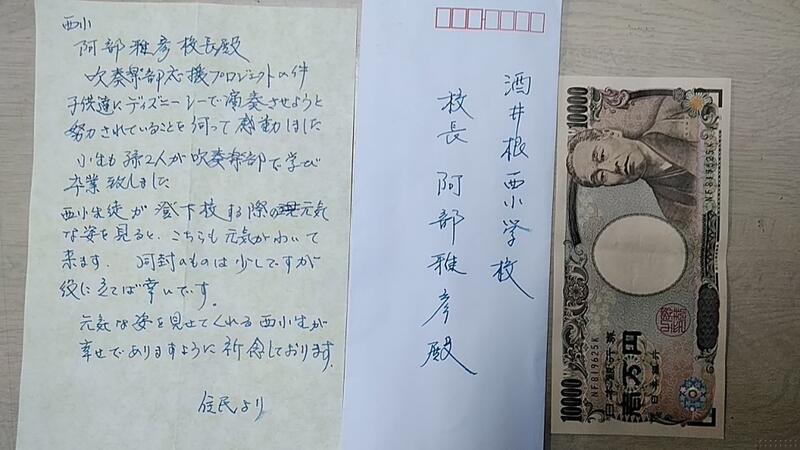 西小
阿部雅彦校長殿
吹奏楽部応援プロジェクトの件
子供達にディズニーシーで演奏させようと
努力されていることを伺って感動しました
小生も孫2人が吹奏楽部で学び
卒業致しました
西小生徒が登下校する際の元気
な姿を見ると、こちらも元気がわいて
来ます。同封のものは少しですが
役に立てば幸いです。
元気な姿を見せてくれる西小生が
幸せでありますように祈念しております。
住民より
酒井根西小学校
校長 阿部雅彦殿
10000
NF819625K
日本銀行券
壱万円
日本銀行
10000
NF819625K